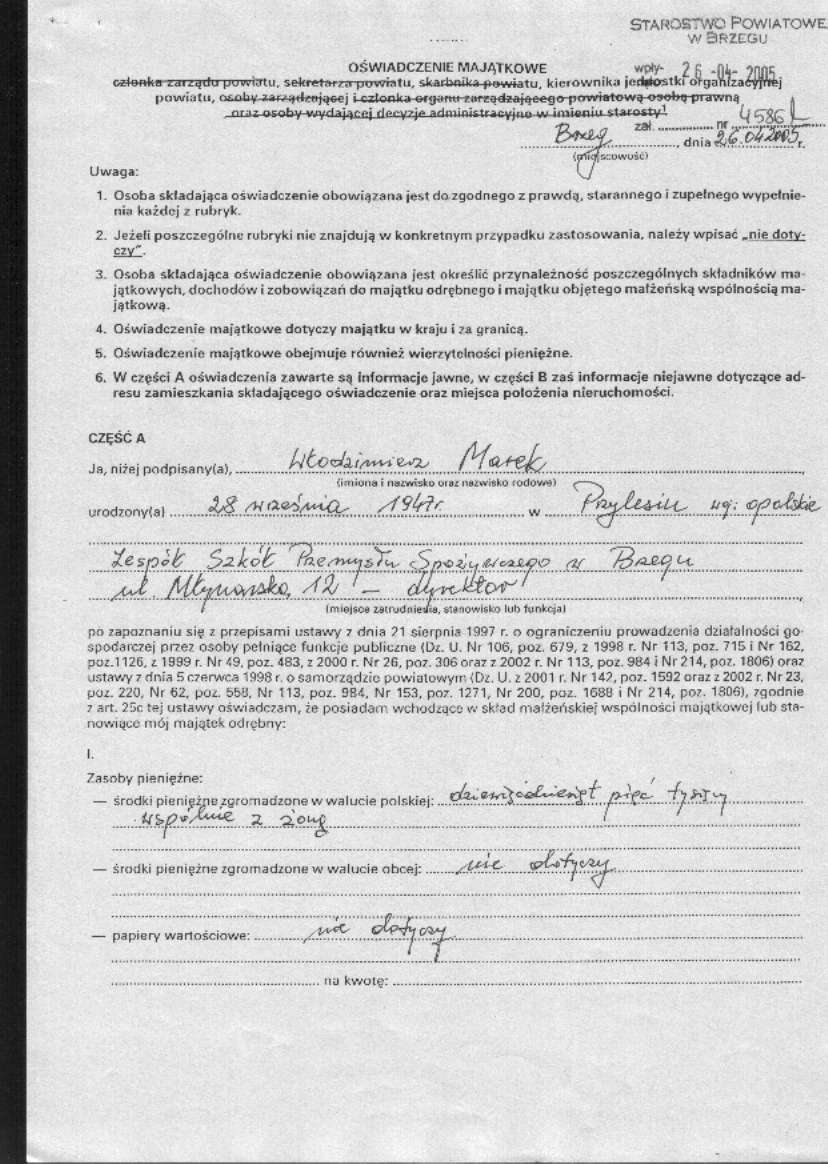 STAROSTWO POWIATOWE
W BRZEGU
OŚWIADCZENIE MAJĄTKOWE
wpły- 26 -04- 2005
członka zarządu powiatu, sekretarza powiatu, skarbnika powiatu, kierownika jednostki organizacyjnej
powiatu, osoby zarządzającej i członka organu zarządzającego powiatową osobą prawną
oraz osoby wydającej decyzje administracyjne w imieniu starosty¹
zał. nr 4586
Brzeg, dnia 26.04.2005 r.
(miejscowość)
Uwaga:
1. Osoba składająca oświadczenie obowiązana jest do zgodnego z prawdą, starannego i zupełnego wypełnie-
nia każdej z rubryk.
2. Jeżeli poszczególne rubryki nie znajdują w konkretnym przypadku zastosowania, należy wpisać „nie doty-
czy”.
3. Osoba składająca oświadczenie obowiązana jest określić przynależność poszczególnych składników ma-
jątkowych, dochodów i zobowiązań do majątku odrębnego i majątku objętego małżeńską wspólnością ma-
jątkową.
4. Oświadczenie majątkowe dotyczy majątku w kraju i za granicą.
5. Oświadczenie majątkowe obejmuje również wierzytelności pieniężne.
6. W części A oświadczenia zawarte są informacje jawne, w części B zaś informacje niejawne dotyczące ad-
resu zamieszkania składającego oświadczenie oraz miejsca położenia nieruchomości.
CZĘŚĆ A
Ja, niżej podpisany(a), Włodzimierz Marek,
(imiona i nazwisko oraz nazwisko rodowe)
urodzony(a) 28 września 1947r. w Przylesiu woj: opolskie
Zespół Szkół Przemysłu Spożywczego w Brzegu
ul. Młynarska 12 – dyrektor
(miejsce zatrudnienia, stanowisko lub funkcja)
po zapoznaniu się z przepisami ustawy z dnia 21 sierpnia 1997 r. o ograniczeniu prowadzenia działalności go-
spodarczej przez osoby pełniące funkcje publiczne (Dz. U. Nr 106, poz. 679, z 1998 r. Nr 113, poz. 715 i Nr 162,
poz.1126, z 1999 r. Nr 49, poz. 483, z 2000 r. Nr 26, poz. 306 oraz z 2002 r. Nr 113, poz. 984 i Nr 214, poz. 1806) oraz
ustawy z dnia 5 czerwca 1998 r. o samorządzie powiatowym (Dz. U. z 2001 r. Nr 142, poz. 1592 oraz z 2002 r. Nr 23,
poz. 220, Nr 62, poz. 558, Nr 113, poz. 984, Nr 153, poz. 1271, Nr 200, poz. 1688 i Nr 214, poz. 1806), zgodnie
z art. 25c tej ustawy oświadczam, że posiadam wchodzące w skład małżeńskiej wspólności majątkowej lub sta-
nowiące mój majątek odrębny:
I.
Zasoby pieniężne:
— środki pieniężne zgromadzone w walucie polskiej: dziewięćdziesiąt pięć tysięcy
wspólnie z żoną
— środki pieniężne zgromadzone w walucie obcej: nie dotyczy
— papiery wartościowe: nie dotyczy
na kwotę: